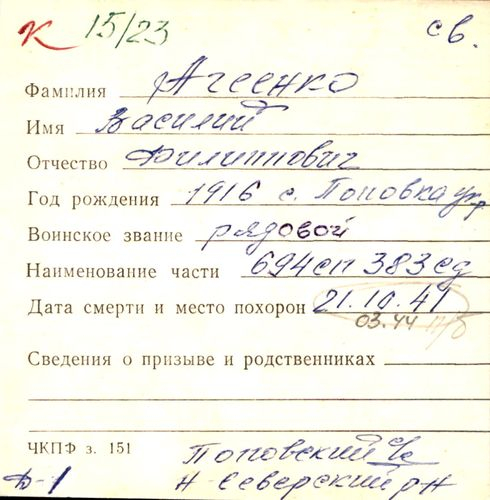 К 15/23 св.
Фамилия Агеенко
Имя Василий
Отчество Филиппович
Год рождения 1916 с. Поповка укр
Воинское звание рядовой
Наименование части 694 сп 383 сд
Дата смерти и место похорон 21.10.41
03.44 п/б
Сведения о призыве и родственниках
ЧКПФ з. 151
Поповский с/с
Ф-1 Н-Северский р-н